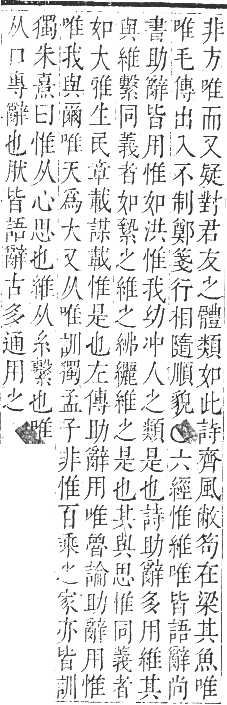 非方唯而又疑對君友之體類如此詩齊風敝笱在梁其魚唯
唯毛傳出入不制鄭箋行相隨順貌〇六經惟維唯皆語辭尚
書助辭皆用惟如洪惟我幼冲人之類是也詩助辭多用維其
與維繫同義者如縶之維之紼纚維之是也其與思惟同義者
如大雅生民章載謀載惟是也左傳助辭用唯魯論助辭用惟
唯我與爾唯天爲大又从唯訓獨孟子非惟百乘之家亦皆訓
獨朱熹曰惟从心思也維从糸繫也唯
从口專辭也肰皆語辭古多通用之